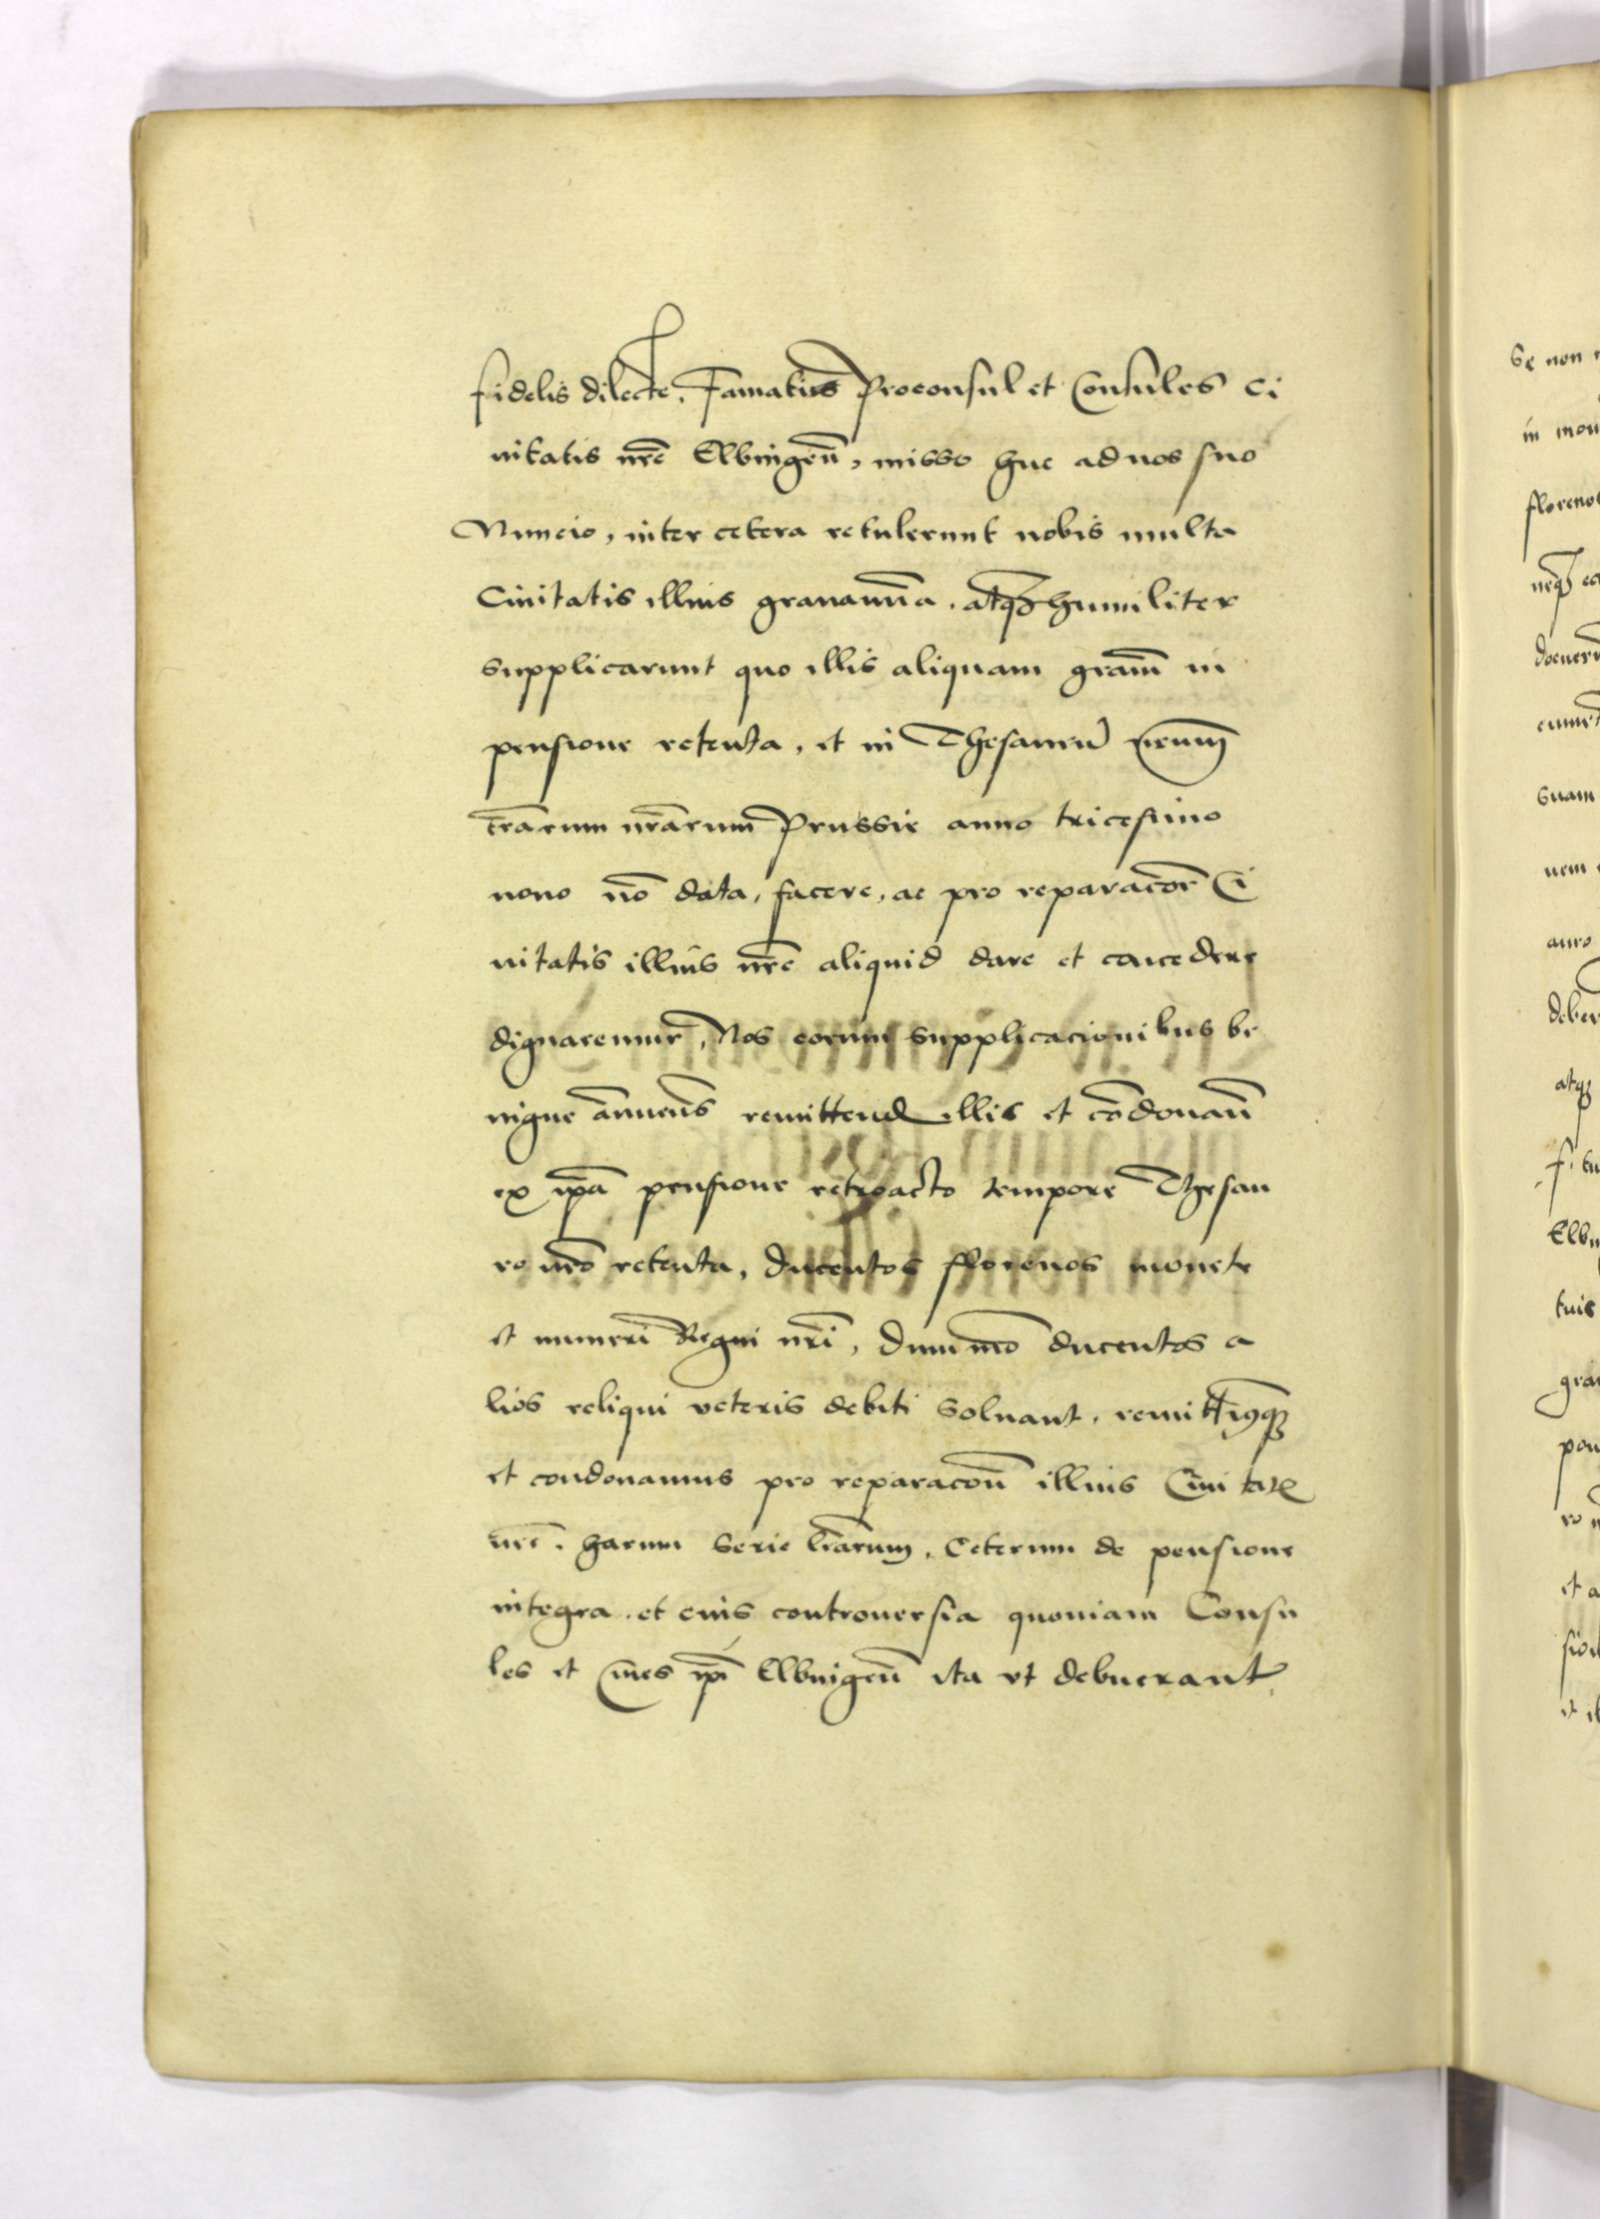 fidelis dilecte. Famatus Proconsul et Consules Ci
uitatis nr̃e Elbingeñ, misso huc ad nos suo
Nuncio, inter cetera retulerunt nobis multa
Ciuitatis illius grauamĩa. atq̃ humiliter
supplicarunt quo illis aliquam gram̃ in
pensione retenta, et in Thesaurũ nr̃um
tr̃arum nr̃arum Prussie anno tricesimo
nono nõ data, facere, ac pro reparacõe Ci
uitatis illius nr̃e aliquid dare et concedere
dignaremur, Nos eorum supplicacionibus be
nigne ãnuens remittend illis et cõdonañ
ex ip̃a pensione retroacto tempore Thesau
ro nr̃o retenta, ducentos florenos monete
et numeri Regni nr̃i, dummõ ducentos a
lios reliqui veteris debiti soluant. remittimusq̃
et condonamus pro reparacõñ illius Ciuitatis
nr̃e. harum serie lr̃arum. Ceterum de pensione
integra. et eius controuersia quoniam Consu
les et Ciues ip̃i Elbingeñ ita vt debuerant
Se non
in
floreno
neq̃
suam
nem
auro
atq̃
tuis
et a